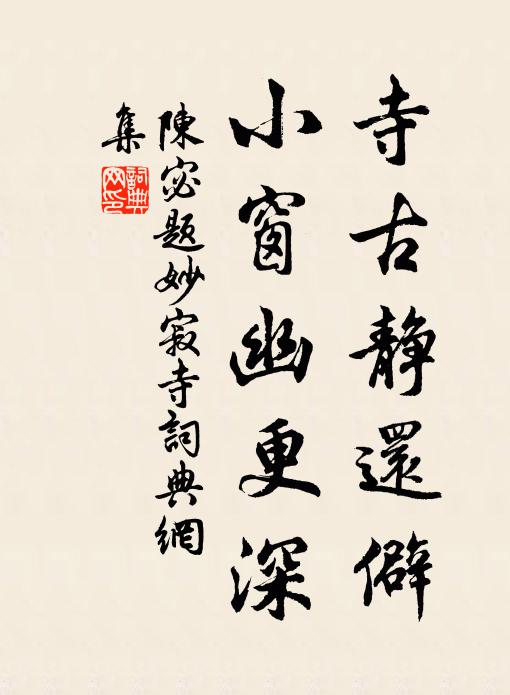 寺古静還僻
小窗幽更深
陳宓題妙寂寺詞典網
集
詞典网印